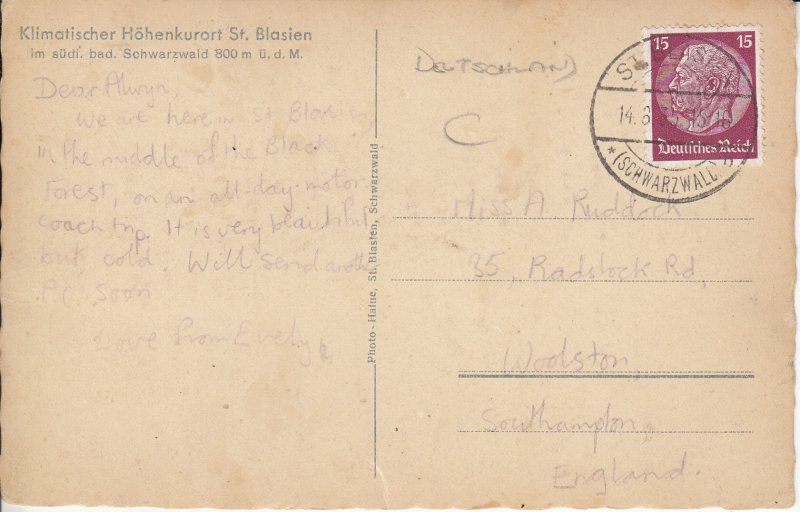 Klimatischer Höhenkurort St. Blasien
im südl. bad. Schwarzwald 800 m ü. d. M.
Dear Alwyn,
We are here in St Blasien,
in the middle of the Black
Forest, on an all-day motor
coach trip. It is very beautiful
but cold. Will send another
P.C. soon
Love from Evelyn
Photo-Haine, St. Blasien, Schwarzwald
DEUTSCHLAND
C
15 15
Deutsches Reich
14.8.
(SCHWARZWALD)
Miss A Ruddock
35, Radstock Rd,
Woolston,
Southampton,
England.